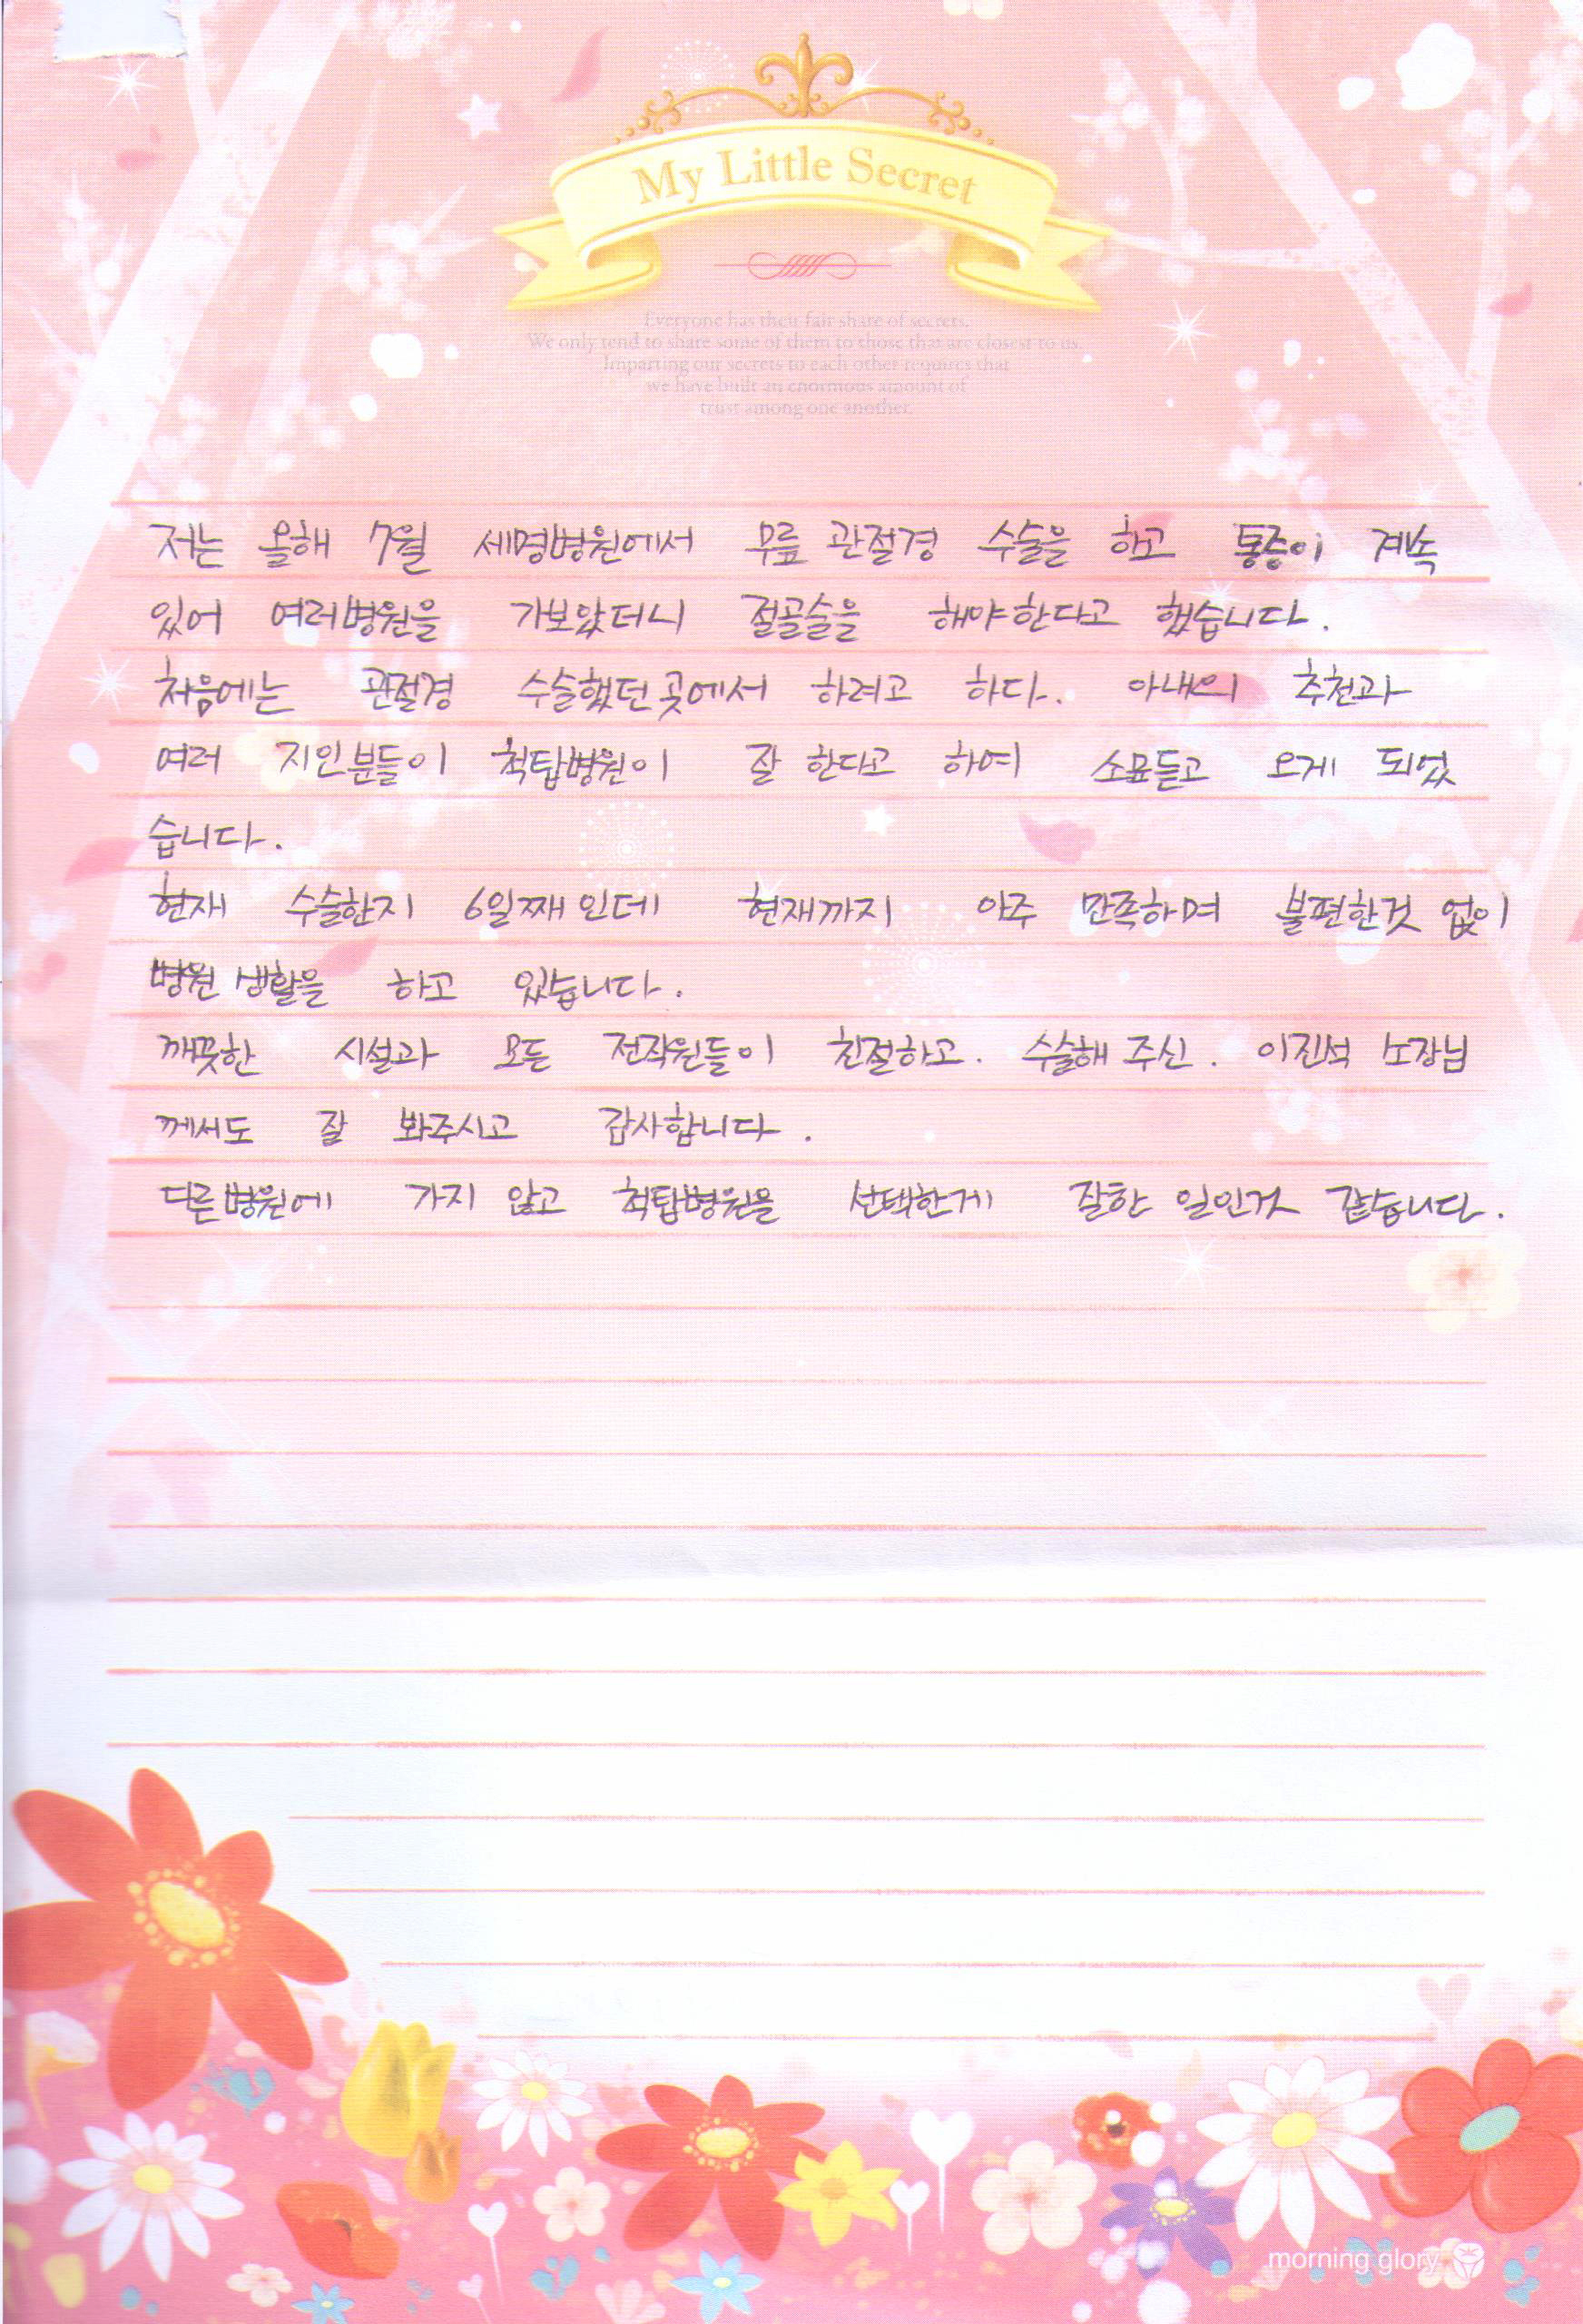 My Little Secret
Everyone has their fair share of secrets.
We only tend to share some of them to those that are closest to us.
Imparting our secrets to each other requires that
we have built an enormous amount of
trust among one another.
저는 올해 7월 세명병원에서 무릎 관절경 수술을 하고 통증이 계속
있어 여러병원을 가보았더니 절골술을 해야한다고 했습니다.
처음에는 관절경 수술했던곳에서 하려고 하다. 아내의 추천과
여러 지인분들이 척탑병원이 잘 한다고 하여 소문듣고 오게 되었
습니다.
현재 수술한지 6일째인데 현재까지 아주 만족하며 불편한것 없이
병원 생활을 하고 있습니다.
깨끗한 시설과 모든 전직원들이 친절하고. 수술해 주신. 이진석 소장님
께서도 잘 봐주시고 감사합니다.
다른병원에 가지 않고 척탑병원을 선택한게 잘한 일인것 같습니다.
morning glory